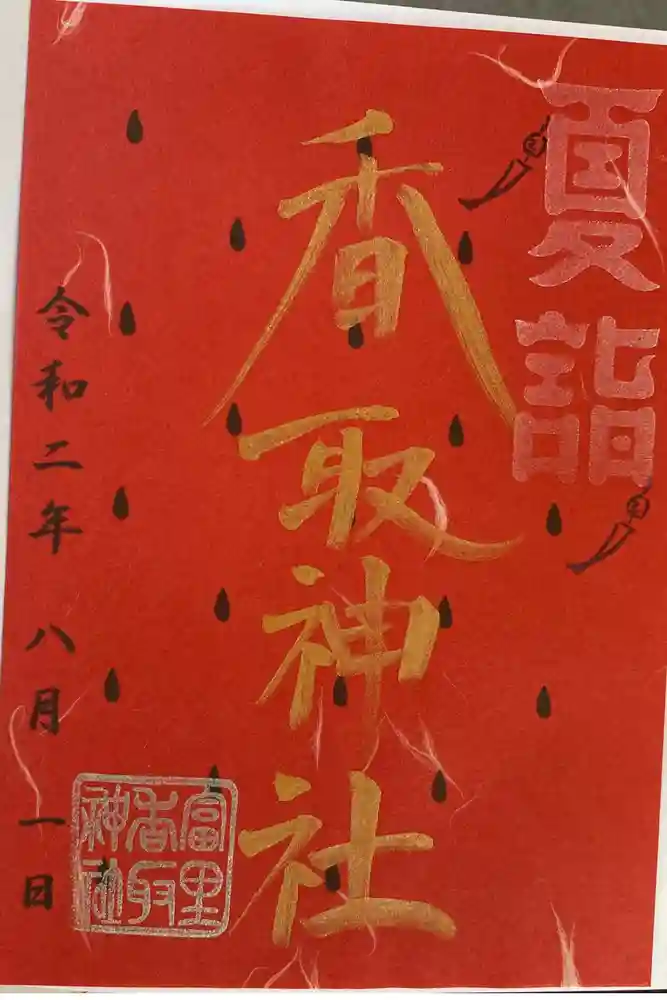 夏詣
香取神社
令和二年八月一日
富里
香取
神社